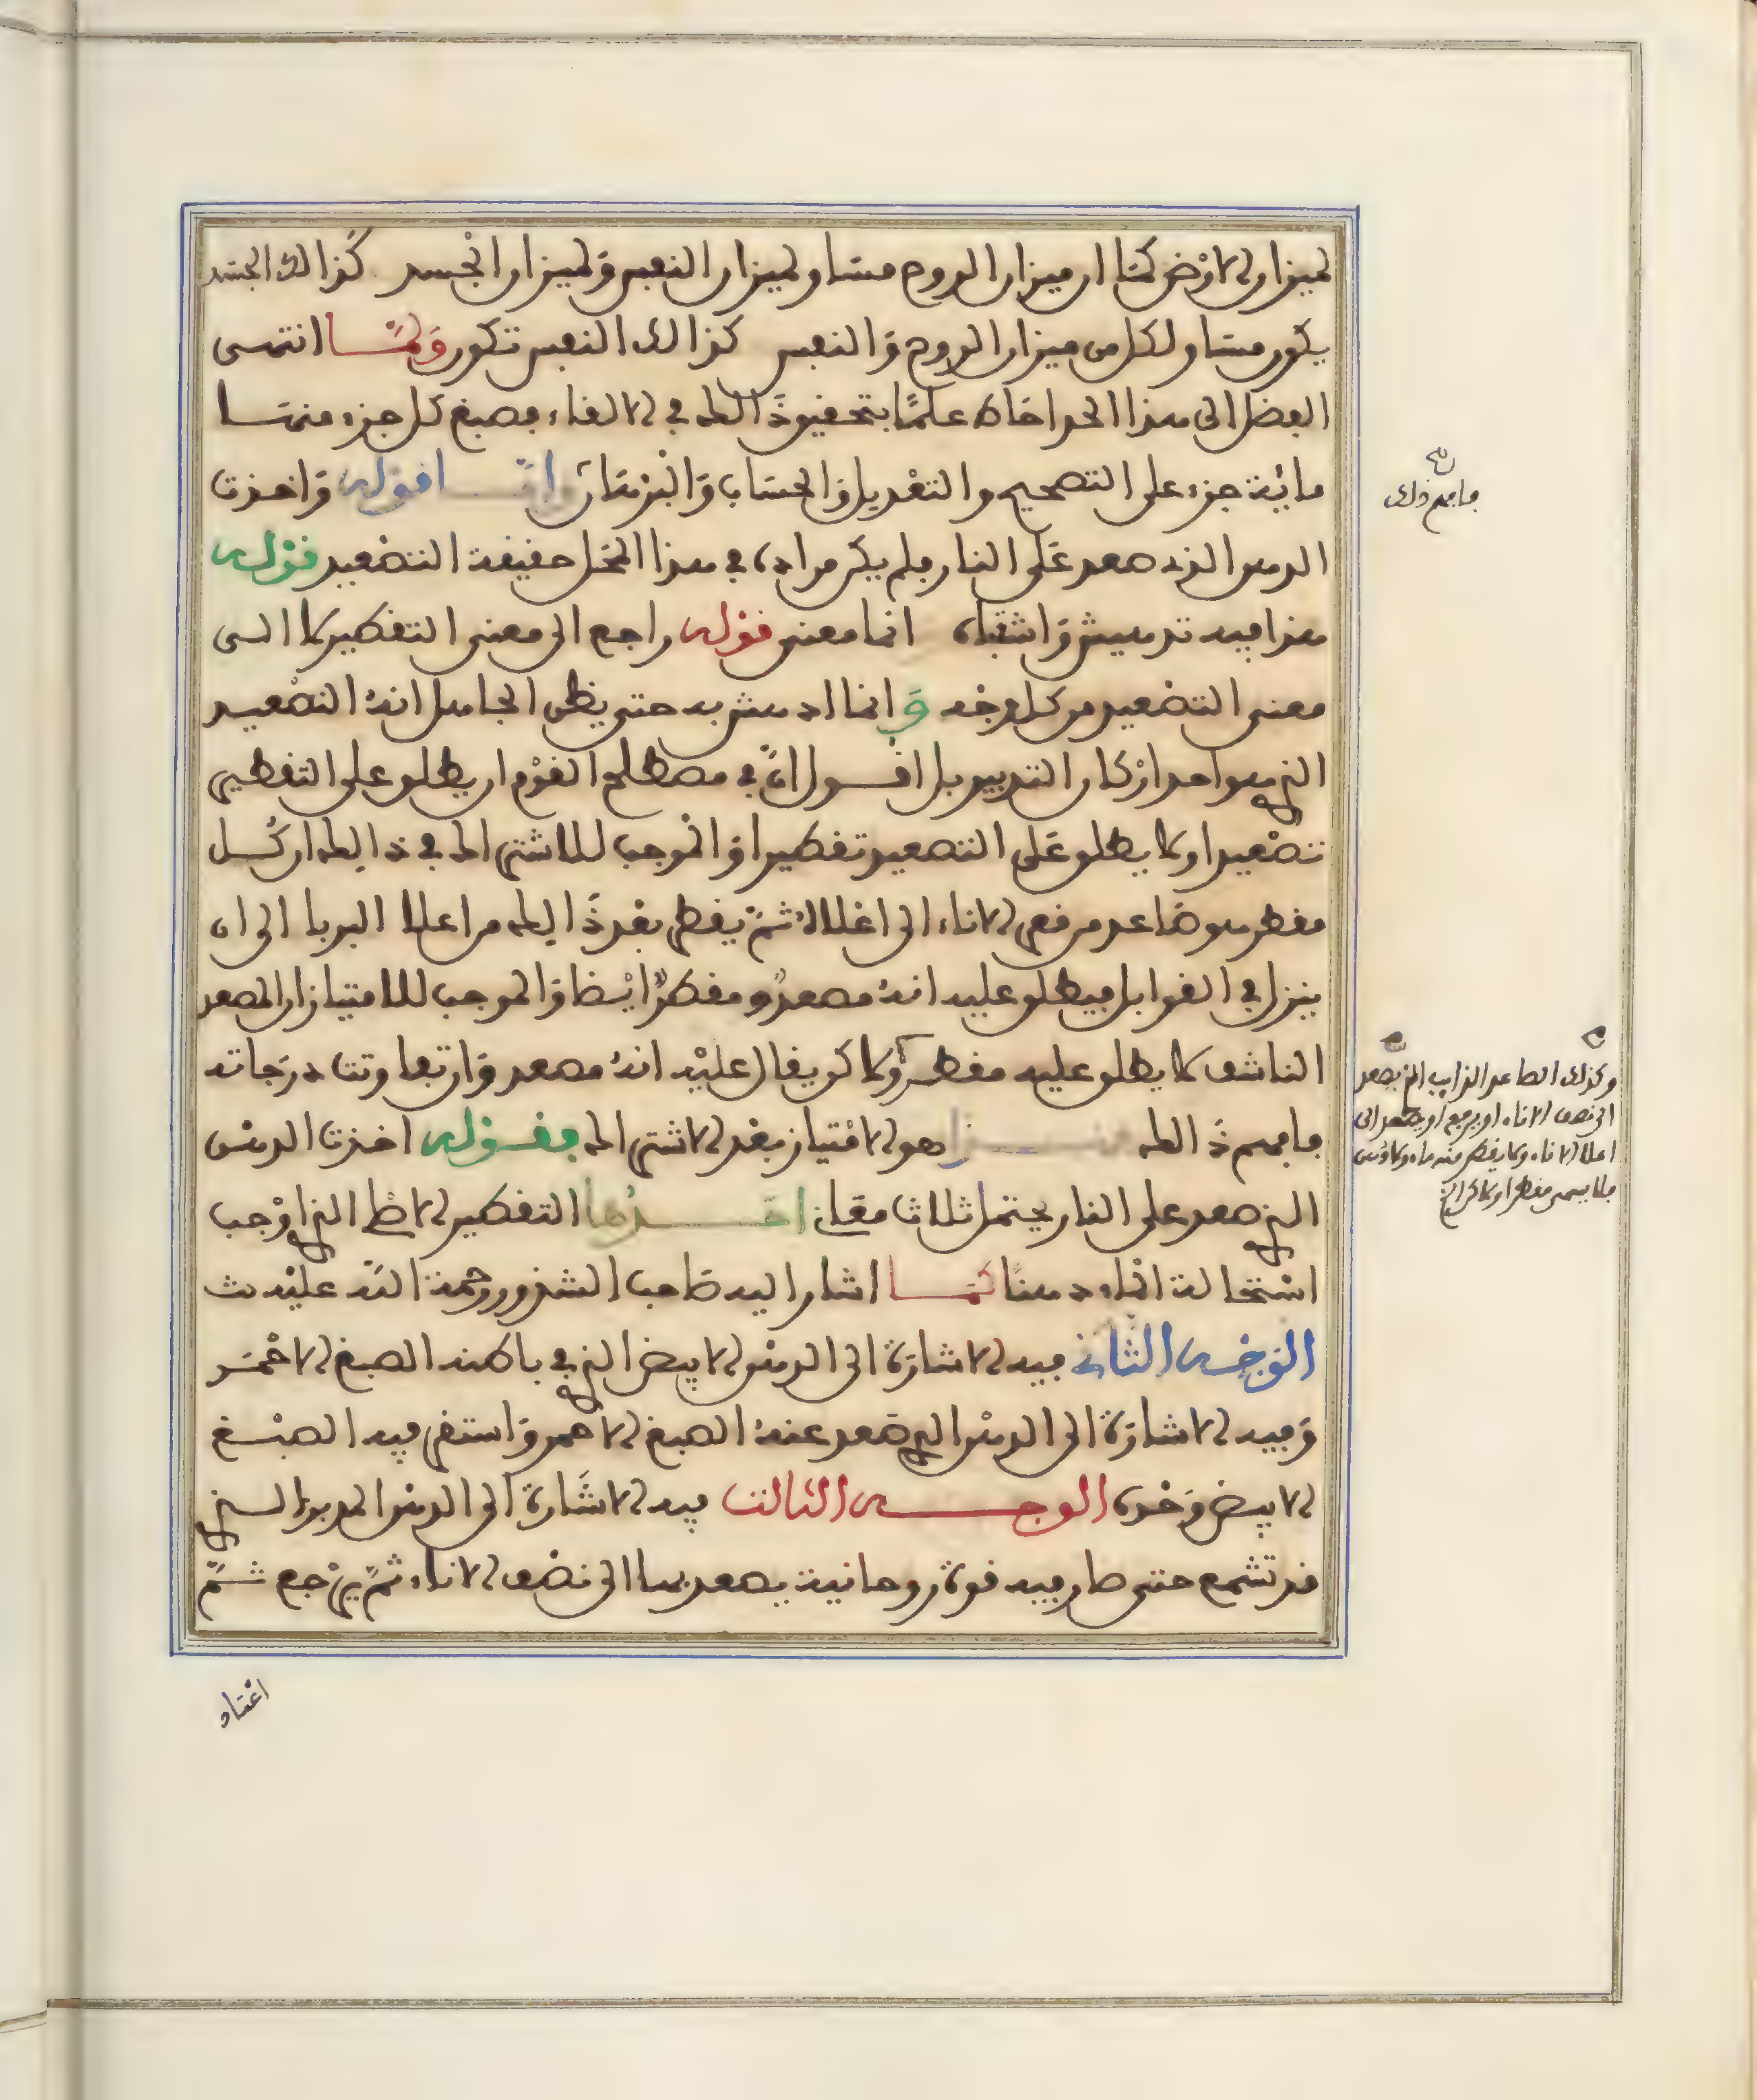 لميزان الارض كما ان ميزان الروح مساو لميزان النفس وَلميزان الجسد كذالك الجسد
يكون مساو لكل من ميزان الروح وَالنفس كذالك النفس تكون وَلمَّا انتهى
الفصل الى هذا الحد احاط علمًا بتحقيق ذَالك في الالقاء فصبغ كل جزء منها
مائية جزء على التصحيح والتعديل وَالحساب وَالبرهان وامّا قوله وَاخذت
الدهن الذى صعد عَلى النار فلم يكن مراده في هذا المحل حقيقة التصعيد قوله
هذا فيه تدهيش وَاشتباه انما معنى قوله راجع الى معنى التقطير لا الى
معنى التصعيد من كل وجه وَانما ادهش به حتى يظن الجاهل انهُ التصعيد
الذي هو احد اركان التدبير بل اقول انّ في مصطلح القوْم ان يطلق على التقطير
تصْعيدا ولا يطلق عَلى التصعيد تقطيرا وَالموجب للاشتراك في ذالك ان كُل
مقطر هو صَاعد من قعر الاناء الى اعْلاهُ ثمّ يقطر بعْد ذَالك من اعلا البربا الى ان
ينزل في القوابل فيطلق عليه انهُ مصعدٌ ومقطرٌ ايْضا وَالموجب للامتياز ان المصعد
الناشف لا يطلق عليه مقطرٌ ولاكن يقال عليْه انهُ مصعد وَان تفاوتت درَجاته
فافهم ذَالك هذا هو الامْتياز بعْد الاشتراك فقوله اخذت الدهن
الذي صعد على النار يحتمل ثلاث معَان احَدُها التقطير الاصْطلا الذي اوْجب
اسْتحالة الماء دهنًا كمَا اشار اليه صَاحب الشذور رحمة اللّه عليْه ث
الوَجْه الثاني فيه الاشارَة الى الدهن الابيض الذي في باطنه الصبغ الاحْمَر
وَفيه الاشارَة الى الدهْن الذي صَعد عنهُ الصبغ الاحمر وَاستقر فيه الصبْغ
الابيض وَحْده الوجه الثالث فيه الاشَارة الى الدهن المدبر الذي
قد تشمع حتى صار فيه قوة روحانية يصعد بها الى نصْف الاناء ثمّ يرْجع ثمّ
اعْتاد
فافهم ذلك
وكذلك الصاعد الذايب الذي يصعد
الى نصف الاناء او يرجع او يصعد الى
اعلا الاناء ولا يقطر منه ماء ولا دهن
فلا يسمى مقطرا ولاكن